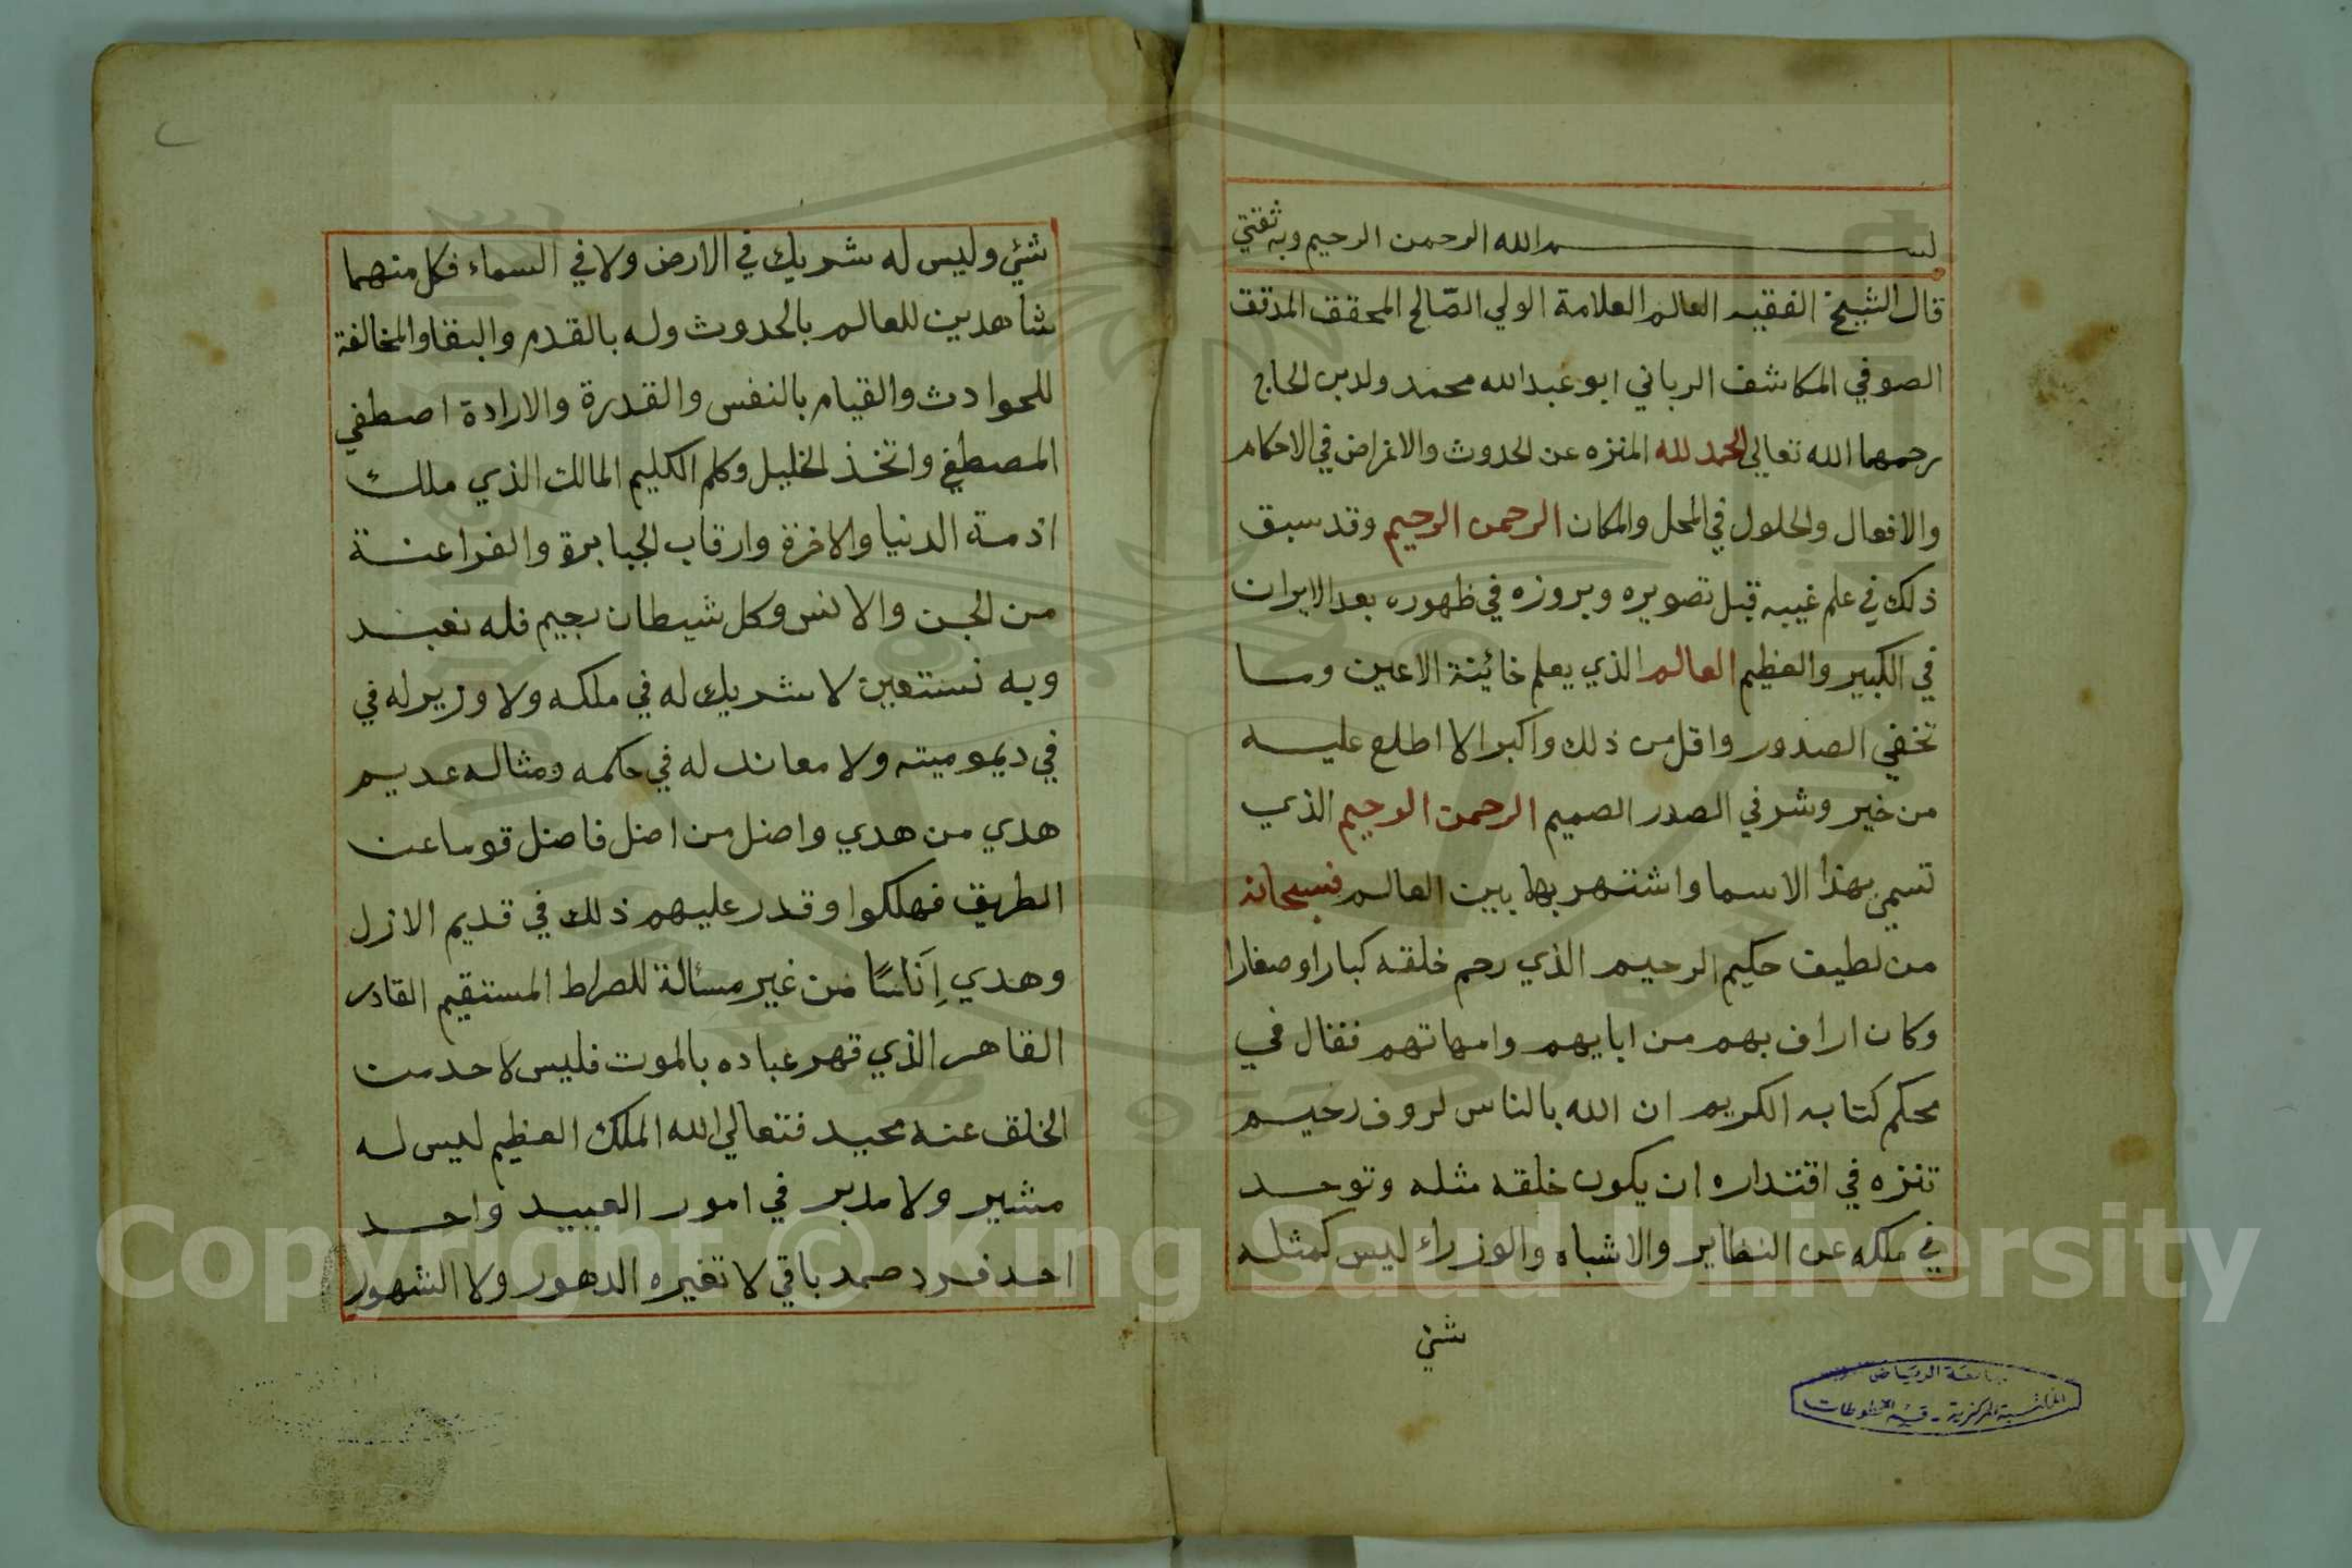 بسم الله الرحمن الرحيم وبه ثقتي
قال الشيخ الفقيه العالم العلامة الولي الصّالح المحقق المدقق
الصوفي المكاشف الرباني ابو عبد الله محمد ولد بن الحاج
رحمهما الله تعالي الحمد لله المنزه عن الحدوث والاغراض في الاحكام
والافعال والحلول في المحل والمكان الرحمن الرحيم وقد سبق
ذلك في علم غيبه قبل تصويره وبروزه في ظهوره بعد الايران
في الكبير والعظيم العالم الذي يعلم خائينة الاعين وما
تخفي الصدور واقل من ذلك واكبر الا اطلع عليه
من خير وشر في الصدر الصميم الرحمن الرحيم الذي
تسمي بهذا الاسما واشتهر بها بين العالم فسبحانه
من لطيف حكيم الرحيم الذي رحم خلقه كبارا وصغارا
وكان اراف بهم من ابايهم وامهاتهم فقال في
محكم كتابه الكريم ان الله بالناس لروف رحيم
تنزه في اقتداره ان يكون خلقه مثله وتوحد
في ملكه عن النظاير والاشباه والوزراء ليس كمثله
شئ
جامعة الرياض
المكتبة المركزية - قسم المخطوطات
شئ وليس له شريك في الارض ولا في السماء فكل منهما
شاهدين للعالم بالحدوث وله بالقدم والبقا والمخالفة
للحوادث والقيام بالنفس والقدرة والارادة اصطفي
المصطفي واتخذ الخليل وكلم الكليم المالك الذي ملك
ازمة الدنيا والاخرة وارقاب الجبابرة والفراعنة
من الجن والانس وكل شيطان رجيم فله نعبد
وبه نستعين لا شريك له في ملكه ولا وزير له في
في ديموميته ولا معاند له في حكمه ومثاله عديم
هدي من هدي واضل من اضل فاضل قوما عن
الطريق فهلكوا وقدر عليهم ذلك في قديم الازل
وهدي اَناسًا من غير مسألة للصراط المستقيم القادر
القاهر الذي قهر عباده بالموت فليس لاحد من
الخلق عنه محيد فتعالي الله الملك العظيم ليس له
مشير ولا مدبر في امور العبيد واحد
احد فرد صمد باقي لا تغيره الدهور ولا الشهور
Copyright © King Saud University